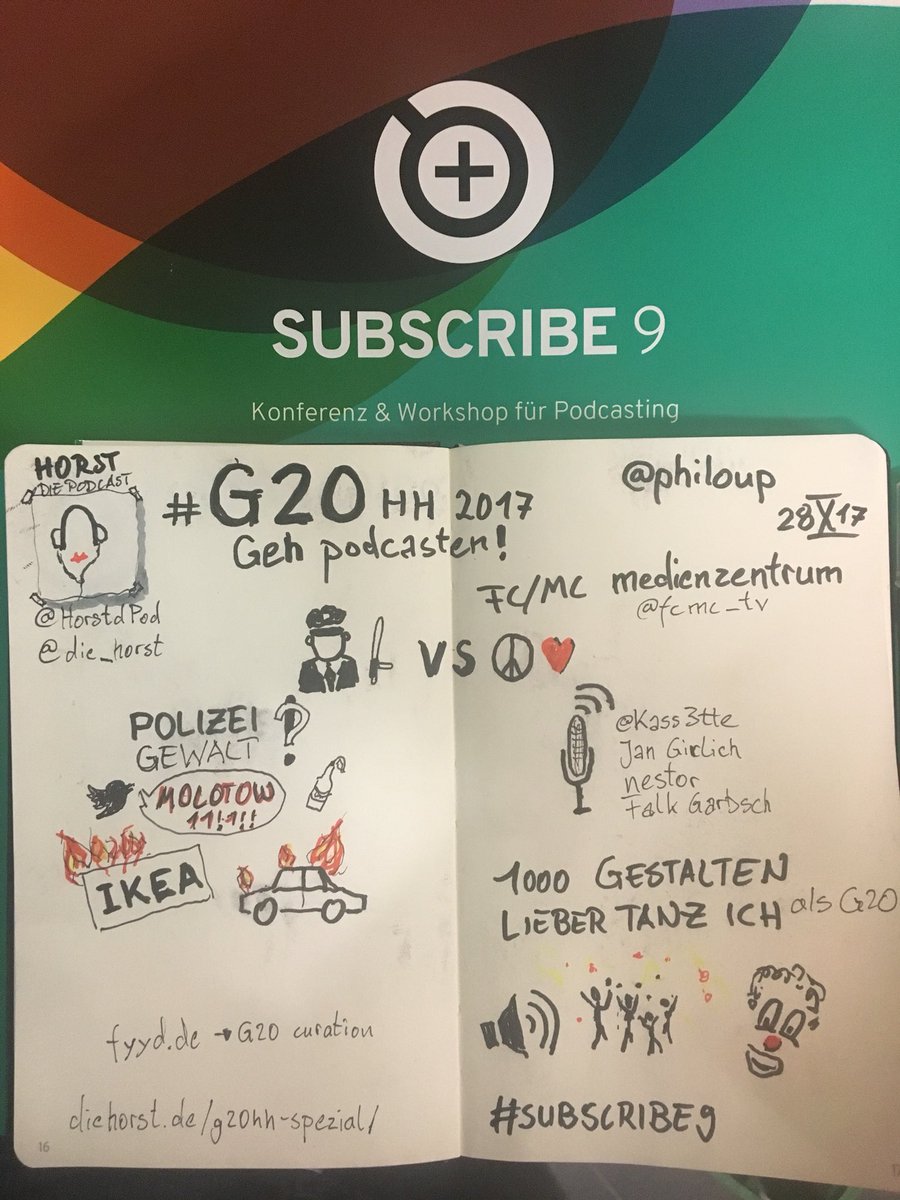 SUBSCRIBE 9
Konferenz & Workshop für Podcasting
HORST
DIE PODCAST
@HorstdPod
@die_horst
#G20 HH 2017
Geh podcasten!
@philoup
28X17
FC/MC medienzentrum
@fcmc_tv
VS
POLIZEI
GEWALT ?
MOLOTOW
11!1!!
IKEA
fyyd.de → G20 curation
diehorst.de/g20hh-spezial/
16
@Kass3tte
Jan Girlich
nestor
Falk Garbsch
1000 GESTALTEN
LIEBER TANZ ICH als G20
#SUBSCRIBE9